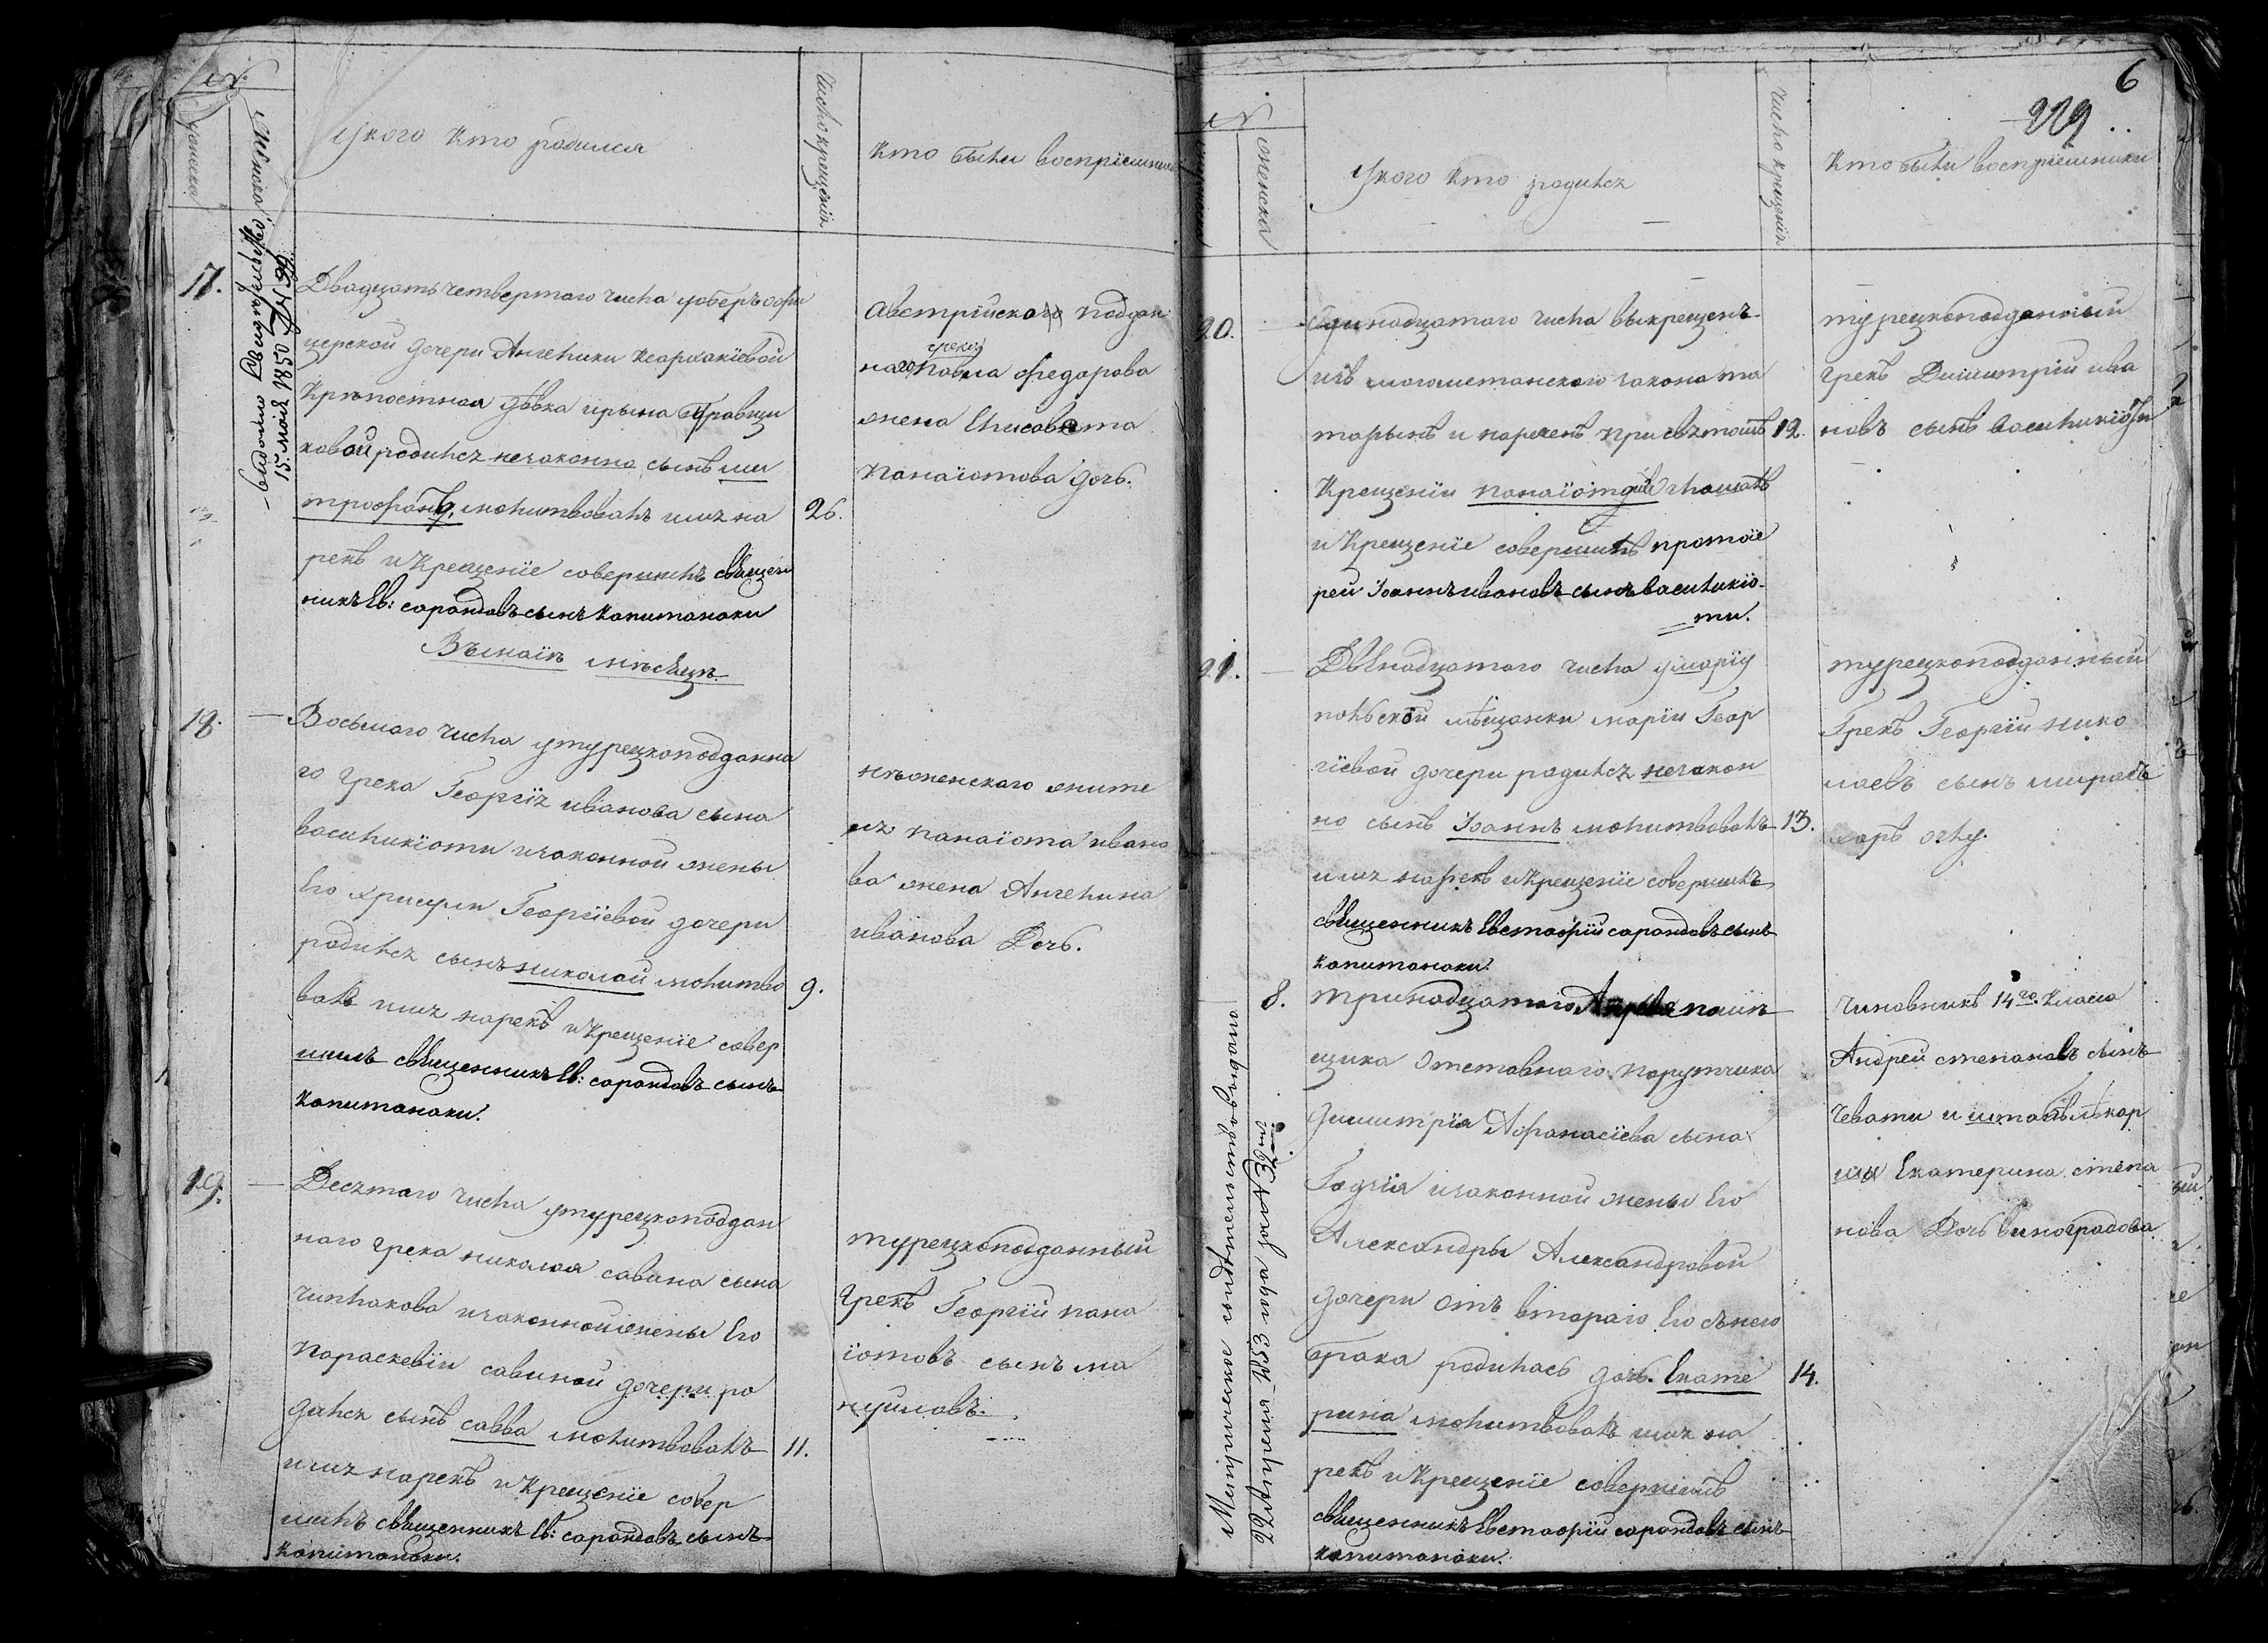 №
мужеска
женска
У кого кто родился
Число крещенія
Кто были воспріемники
17.
выдано свидетельство
15. мая 1850 № 39
Двадцать четвертаго числа уоберъ офи
церской дочери Ангелики
Крѣпостная дѣвка ирына
ковой родился незаконно сынъ ми
трофанъ, молитвовалъ имя на
рекъ и Крещеніе совершилъ священ
никъ Ев: сарандовъ сынъ Капитанаки
26.
Австрійскаго поддан
грека
наго Павла Федорова
жена Елисавета
Панаіотова дочь.
Въ маіѣ мѣсяцѣ
18.
Восьмаго числа у турецкоподданна
го Грека Георгія иванова сына
василикіоти и законной жены
Его Христин Георгіевой дочери
родился сынъ николай молитво
валъ имя нарекъ и Крещеніе совер
шилъ священникъ Ев: сарандовъ сынъ
Капитанаки.
9.
нѣженскаго жите
ля панаіота ивано
ва жена Ангелина
иванова Дочь.
19.
Десятаго числа у турецкоподдан
наго Грека николая савина сына
чиплакова и законной жены Его
Параскевіи савиной дочери ро
дился сынъ савва молитвовалъ
имя нарекъ и Крещеніе совер
шилъ священникъ Ев: сарандовъ сынъ
Капитанаки.
11.
турецкоподданный
Грекъ Георгій пана
іотовъ сынъ ма
нуиловъ.
6
229
№
женска
У кого кто родился
Число крещенія
Кто были воспріемники
20.
Одинадцатаго числа выкрещенъ
изъ магометанскаго закона та
тарынъ и нареченъ при святомъ
Крещеніи панаіотъ
и Крещеніе совершилъ протоіе
рей Іоаннъ ивановъ сынъ василикіо
ти.
12.
турецкоподданный
Грекъ Димитрій ива
новъ сынъ василикіоти
21.
Двѣнадцатаго числа у маріу
польской мѣщанки маріи Геор
гіевой дочери родился незакон
но сынъ Іоаннъ молитвовалъ
имя нарекъ и Крещеніе совершилъ
священникъ Евстафій сарандовъ сынъ
Капитанаки.
13.
турецкоподданный
Грекъ Георгій нико
лаевъ сынъ
8.
Метрическое свидѣтельство выдано
22 Апреля 1853 года за № 32мъ
тринадцатаго помѣ
щика Отставнаго поручика
Димитрія Афанасіева сына
и законной жены Его
Александры Александровой
дочери отъ втораго Его съ нею
брака родилась дочь. Екате
рина молитвовалъ имя на
рекъ и Крещеніе совершилъ
священникъ Евстафій сарандовъ сынъ
капитанаки.
14.
Чиновникъ 14го. Класа
Андрей степановъ сынъ
Чевати и штабъ лѣкар
ша Екатерина степа
нова Дочь Виноградова.